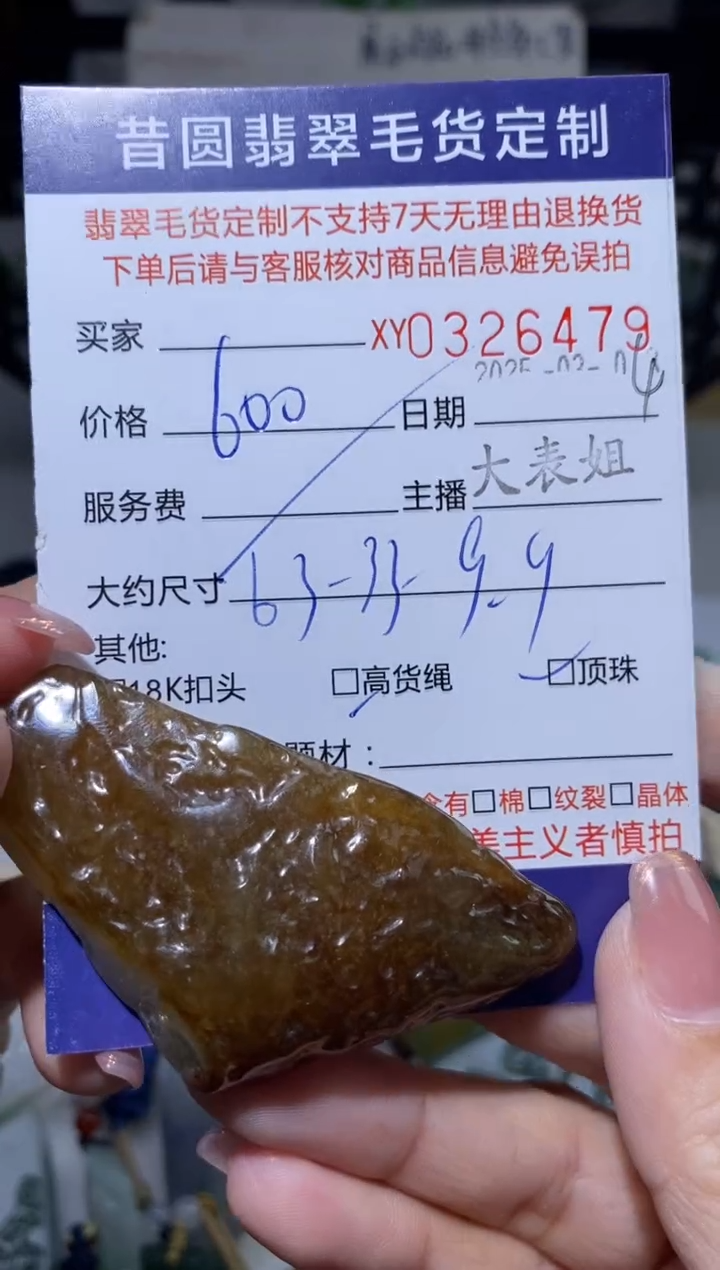 昔圆翡翠毛货定制
翡翠毛货定制不支持7天无理由退换货
下单后请与客服核对商品信息避免误拍
买家 XY0326479
价格 600 日期 2025-03-04
服务费 主播 大表姐
大约尺寸 63-33-9.9
其他:
18K扣头 □高货绳 □顶珠
题材：
含有□棉□纹裂□晶体
美主义者慎拍